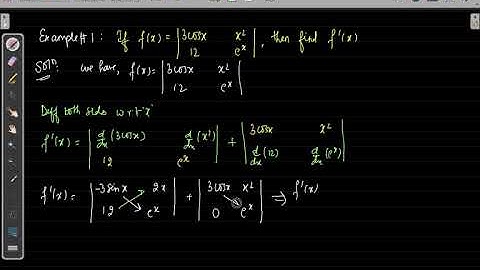 Example #1: If f(x) = |3cosx x² 12 eˣ|, then find f'(x)
Soln: we have, f(x) = |3cosx x² 12 eˣ|
Diff both side w.r.t 'x'
f'(x) = |d/dx (3cosx) d/dx (x²) 12 eˣ| + |3cosx x² d/dx (12) d/dx (eˣ)|
f'(x) = |-3sinx 2x 12 eˣ| + |3cosx x² 0 eˣ| ⇒ f'(x)